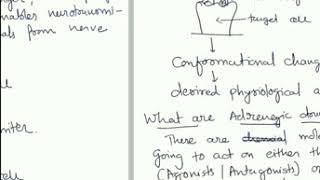 nables neurotransmi-
als from nerve
miter.
target cell
Conformational chang
derived physiological a
What are Adrenegic
These are mole
going to act on either th
(Agonists / Antagonists) or